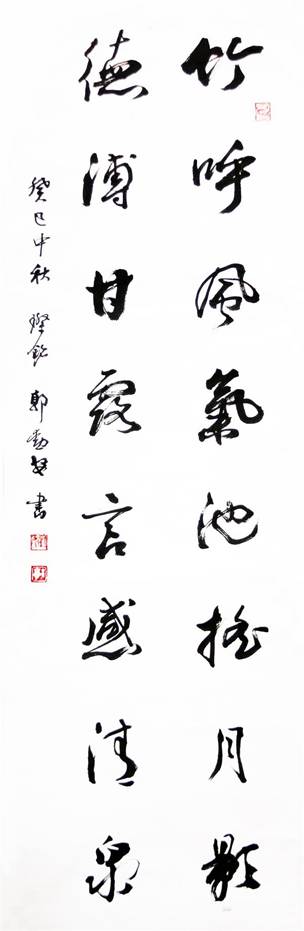 竹呼風氣池搖月影
德溥甘露言感清泉
癸巳中秋 郭 書